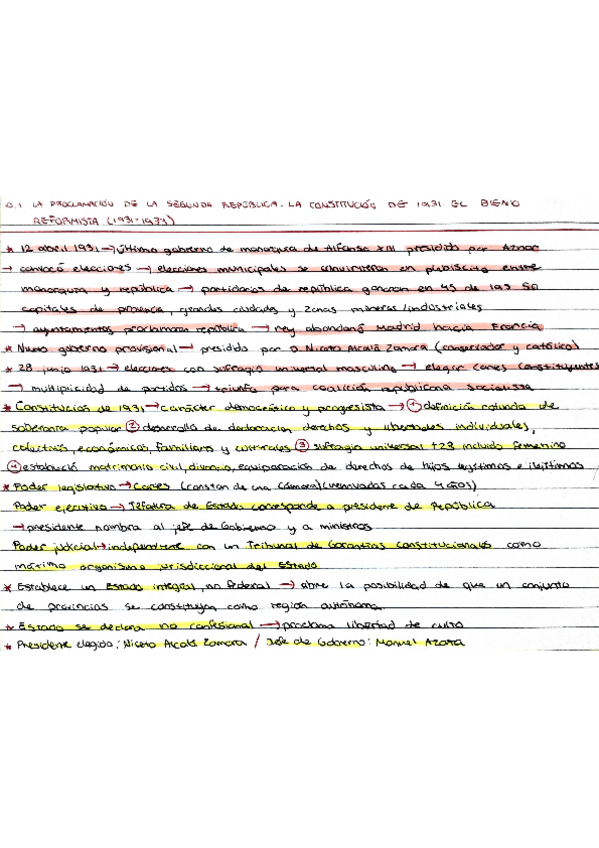 10.1 LA PROCLAMACIÓN DE LA SEGUNDA REPÚBLICA. LA CONSTITUCIÓN DE 1931 EL BIENIO
REFORMISTA (1931-1934)
* 12 abril 1931 → último gobierno de monarquía de Alfonso XIII presidido por Aznar
→ convocó elecciones → elecciones municipales se convirtieron en plebiscito entre
monarquía y república → partidarios de república ganaron en 45 de las 50
capitales de provincia, grandes ciudades y zonas mineras/industriales
→ ayuntamientos proclamaron república → rey abandonó Madrid hacia Francia
* Nuevo gobierno provisional → presidido por D. Niceto Alcalá Zamora (conservador y católico)
* 28 junio 1931 → elecciones con sufragio universal masculino → elegir Cortes Constituyentes
→ multiplicidad de partidos → triunfo para coalición republicana socialista
* Constitución de 1931 → carácter democrático y progresista → ① definición rotunda de
soberanía popular ② desarrollo de declaración derechos y libertades individuales,
colectivos, económicos, familiares y culturales ③ sufragio universal +23 incluido femenino
④ estableció matrimonio civil, divorcio, equiparación de derechos de hijos legítimos e ilegítimos
* Poder legislativo → Cortes (constan de una cámara) (renovadas cada 4 años)
Poder ejecutivo → Jefatura de Estado corresponde a presidente de República
→ presidente nombra al jefe de Gobierno y a ministros
Poder judicial → independiente con un Tribunal de Garantías Constitucionales como
máximo organismo jurisdiccional del Estado
* Establece un Estado integral, no federal → abre la posibilidad de que un conjunto
de provincias se constituyan como región autónoma
* Estado se declara no confesional → proclama libertad de culto
* Presidente elegido: Niceto Alcalá Zamora / Jefe de Gobierno: Manuel Azaña